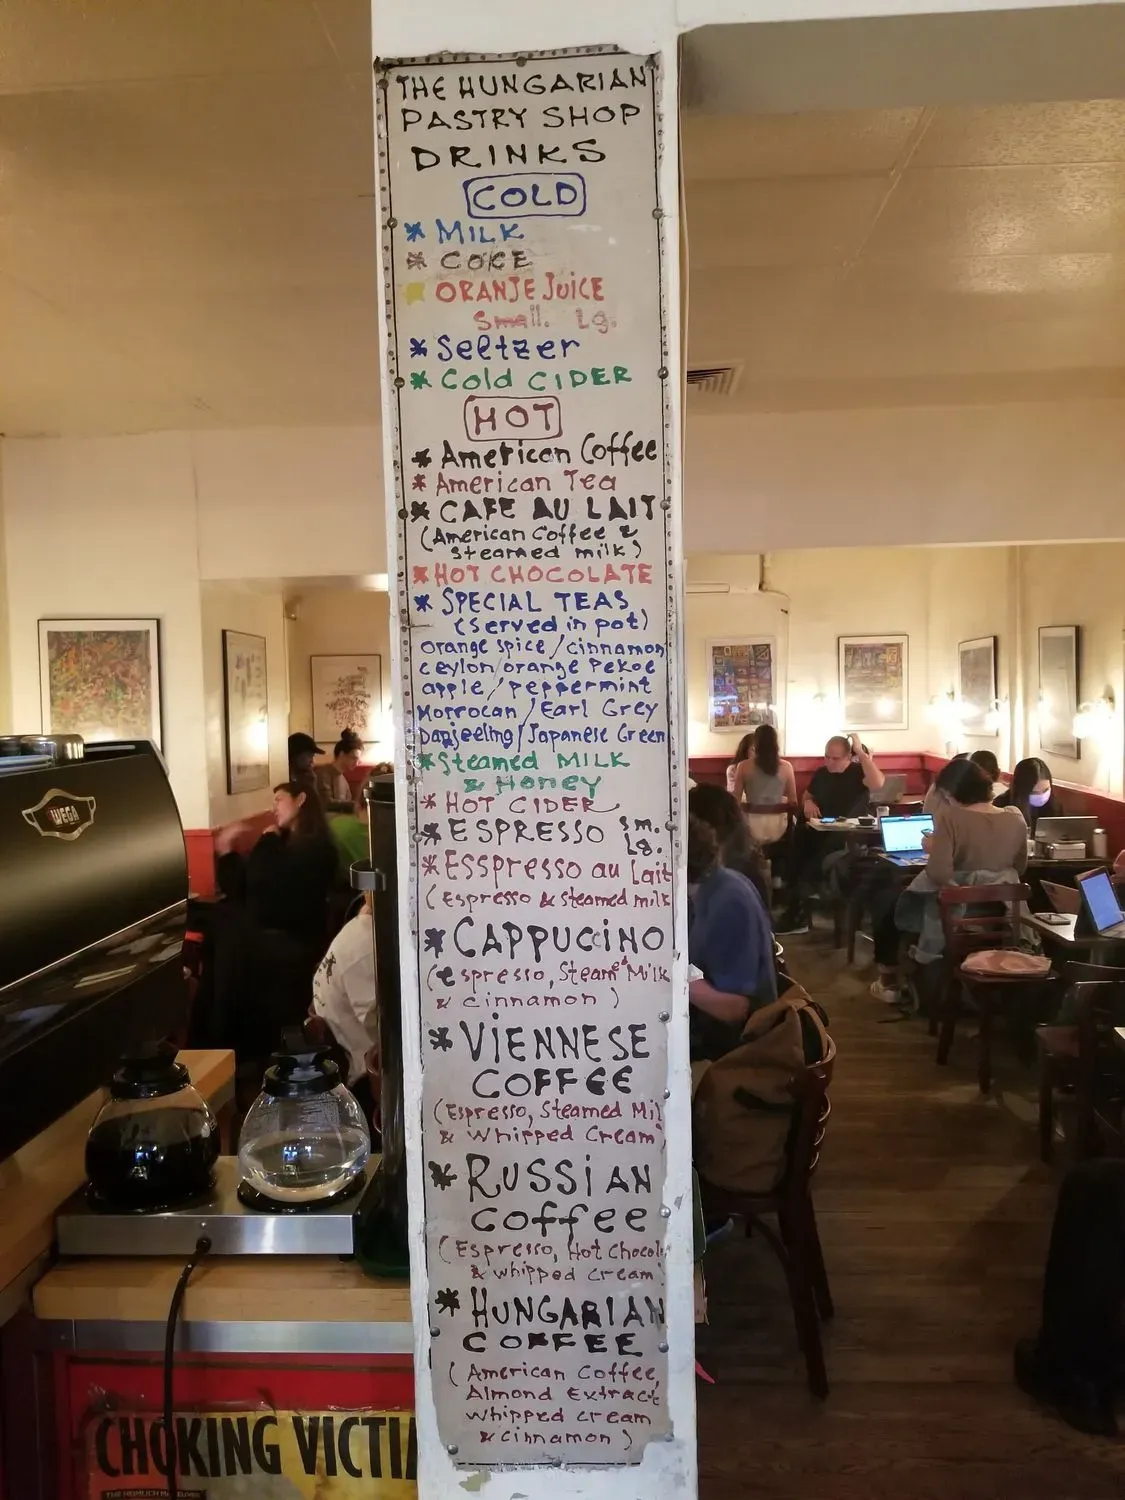 THE HUNGARIAN
PASTRY SHOP
DRINKS
COLD
* MILK
* COKE
* ORANJE JUICE
Small. Lg.
* Seltzer
* Cold CIDER
HOT
* American Coffee
* American Tea
* CAFE AU LAIT
(American Coffee &
steamed milk)
* HOT CHOCOLATE
* SPECIAL TEAS
(served in pot)
orange spice / cinnamon
ceylon / orange Pekoe
apple / peppermint
Morrocan / Earl Grey
Darjeeling / Japanese Green
* Steamed MILK
& Honey
* HOT CIDER
* ESPRESSO sm.
Lg.
* Esspresso au Lait
(Espresso & steamed milk
* CAPPUCINO
(espresso, Steam'd Milk
& cinnamon)
* VIENNESE
COFFEE
(Espresso, Steamed Mil
& Whipped Cream)
* RUSSIAN
Coffee
(Espresso, Hot Chocol
& whipped cream)
* HUNGARIAN
COFFEE
(American Coffee,
Almond Extract
whipped cream
& cinnamon)
WEGA
CHOKING VICTI